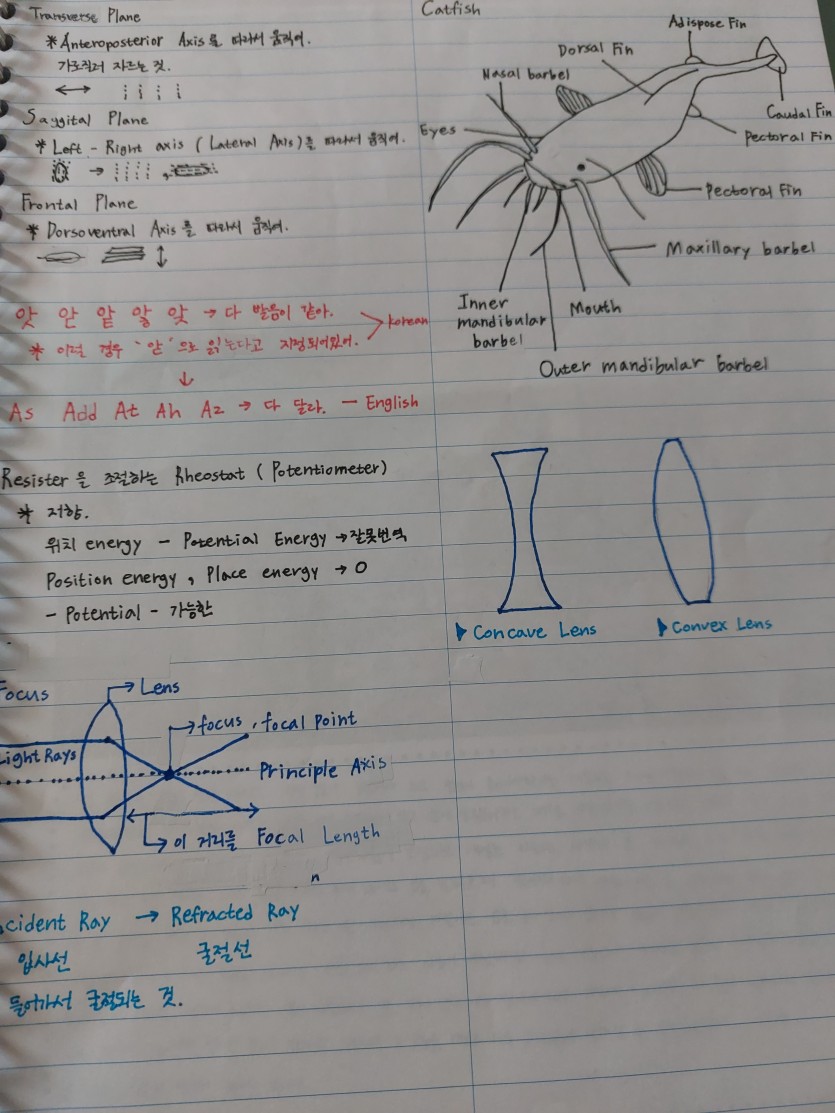 Transverse Plane
* Anteroposterior Axis를 따라서 움직여.
가로질러 자르는 것.
Saggital Plane
* Left - Right axis (Lateral Axis)를 따라서 움직여.
Frontal Plane
* Dorsoventral Axis를 따라서 움직여.
앗 안 앝 앟 앚 → 다 발음이 같아.
* 이런 경우 '앋'으로 읽는다고 지정되어있어.
Korean
↓
As Add At Ah Az → 다 달라. - English
Resister을 조절하는 Rheostat (Potentiometer)
* 저항.
위치 energy - Potential Energy → 잘못번역
Position energy, Place energy → O
- Potential - 가능한
Focus
→ Lens
→ focus, focal point
Light Rays
Principle Axis
→ 이 거리를 Focal Length
n
cident Ray → Refracted Ray
입사선 굴절선
들어가서 굴절되는 것.
Catfish
Adispose Fin
Dorsal Fin
Nasal barbel
Caudal Fin
Eyes
Pectoral Fin
Pectoral Fin
Maxillary barbel
Inner
mandibular
barbel
Mouth
Outer mandibular barbel
Concave Lens
Convex Lens